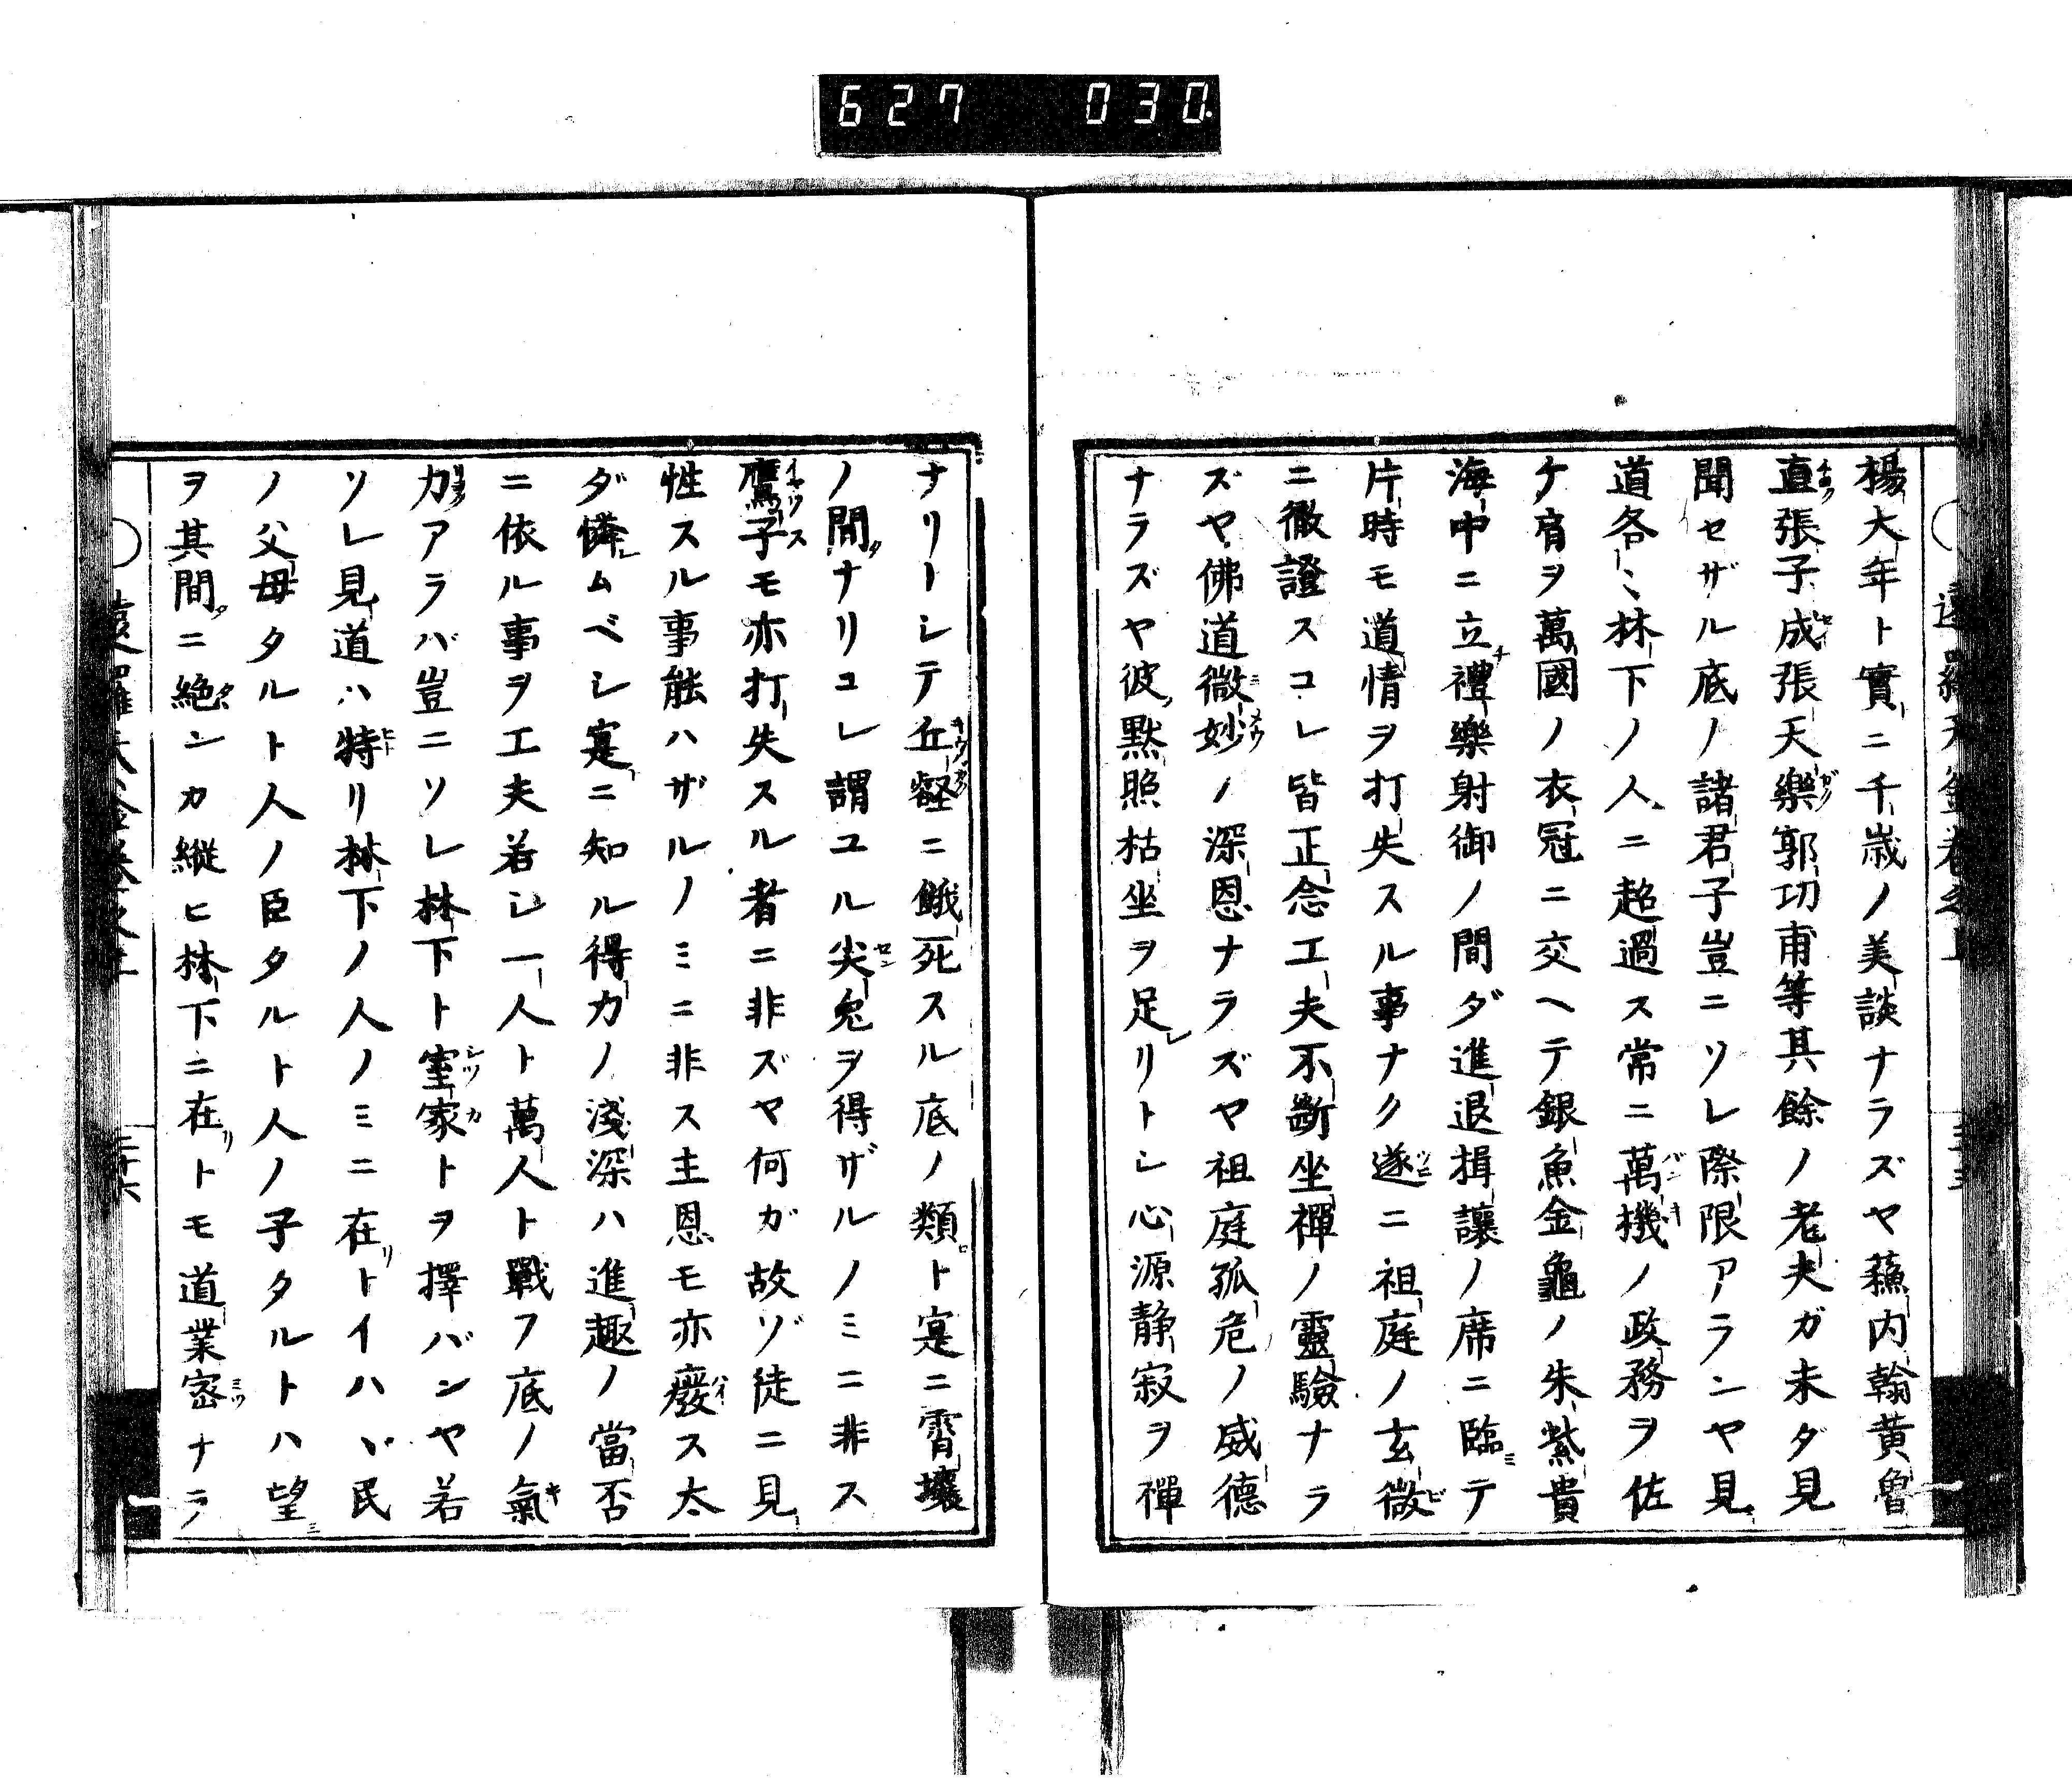 627 030
楊大年ト實ニ千歳ノ美談ナラズヤ蘓内翰黄魯
直張子成張天樂郭功甫等其餘ノ老夫ガ未ダ見
聞セザル底ノ諸君子豈ニソレ際限アランヤ見
道各〻林下ノ人ニ超過ス常ニ萬機ノ政務ヲ佐
ケ肩ヲ萬國ノ衣冠ニ交ヘテ銀魚金龜ノ朱紫貴
海中ニ立禮樂射御ノ間ダ進退揖讓ノ席ニ臨テ
片時モ道情ヲ打失スル事ナク遂ニ祖庭ノ玄微
ニ徹證スコレ皆正念工夫不斷坐禪ノ靈驗ナラ
ズヤ佛道微妙ノ深恩ナラズヤ祖庭孤危ノ威德
ナラズヤ彼默照枯坐ヲ足リトシ心源静寂ヲ禪
ナリトシテ丘壑ニ餓死スル底ノ類ト寔ニ霄壤
ノ間ナリコレ謂ユル尖兔ヲ得ザルノミニ非ス
鷹子モ亦打失スル者ニ非ズヤ何ガ故ゾ徒ニ見
性スル事能ハザルノミニ非ス主恩モ亦癈ス太
ダ憐ムベシ寔ニ知ル得力ノ淺深ハ進趣ノ當否
ニ依ル事ヲ工夫若シ一人ト萬人ト戰フ底ノ氣
力アラバ豈ニソレ林下ト室家トヲ擇バンヤ若
ソレ見道ハ特リ林下ノ人ノミニ在トイハヾ民
ノ父母タルト人ノ臣タルト人ノ子タルトハ望
ヲ其間ニ絶ンカ縱ヒ林下ニ在トモ道業密ナラ